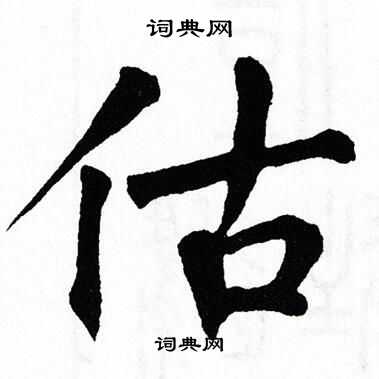 词典网
估
词典网